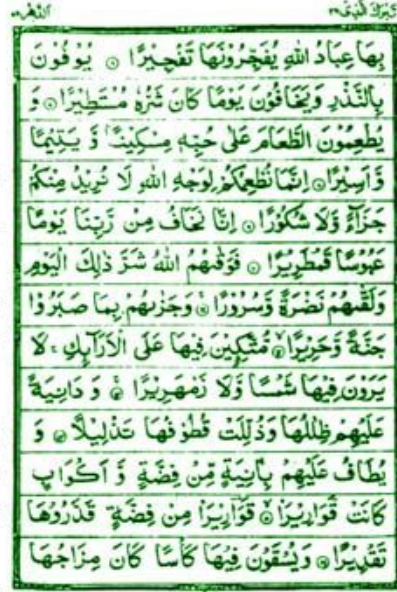 تبٰرك الذی ٢٩
الدھر ٧٦
بِهَا عِبَادُ اللّٰهِ يُفَجِّرُوْنَهَا تَفْجِيْرًا ۞ يُوْفُوْنَ
بِالنَّذْرِ وَيَخَافُوْنَ يَوْمًا كَانَ شَرُّهٗ مُسْتَطِيْرًا ۞ وَ
يُطْعِمُوْنَ الطَّعَامَ عَلٰى حُبِّهٖ مِسْكِيْنًا وَّ يَتِيْمًا
وَّ اَسِيْرًا ۞ اِنَّمَا نُطْعِمُكُمْ لِوَجْهِ اللّٰهِ لَا نُرِيْدُ مِنْكُمْ
جَزَآءً وَّلَا شُكُوْرًا ۞ اِنَّا نَخَافُ مِنْ رَّبِّنَا يَوْمًا
عَبُوْسًا قَمْطَرِيْرًا ۞ فَوَقٰىهُمُ اللّٰهُ شَرَّ ذٰلِكَ الْيَوْمِ
وَلَقّٰىهُمْ نَضْرَةً وَّسُرُوْرًا ۞ وَجَزٰىهُمْ بِمَا صَبَرُوْا
جَنَّةً وَّحَرِيْرًا ۞ مُّتَّكِـِٕيْنَ فِيْهَا عَلَى الْاَرَآىِٕكِ ۚ لَا
يَرَوْنَ فِيْهَا شَمْسًا وَّلَا زَمْهَرِيْرًا ۞ وَ دَانِيَةً
عَلَيْهِمْ ظِلٰلُهَا وَذُلِّلَتْ قُطُوْفُهَا تَذْلِيْلًا ۞ وَ
يُطَافُ عَلَيْهِمْ بِاٰنِيَةٍ مِّنْ فِضَّةٍ وَّ اَكْوَابٍ
كَانَتْ قَوَارِيْرَا۠ ۞ قَوَارِيْرَا۠ مِنْ فِضَّةٍ قَدَّرُوْهَا
تَقْدِيْرًا ۞ وَيُسْقَوْنَ فِيْهَا كَاْسًا كَانَ مِزَاجُهَا